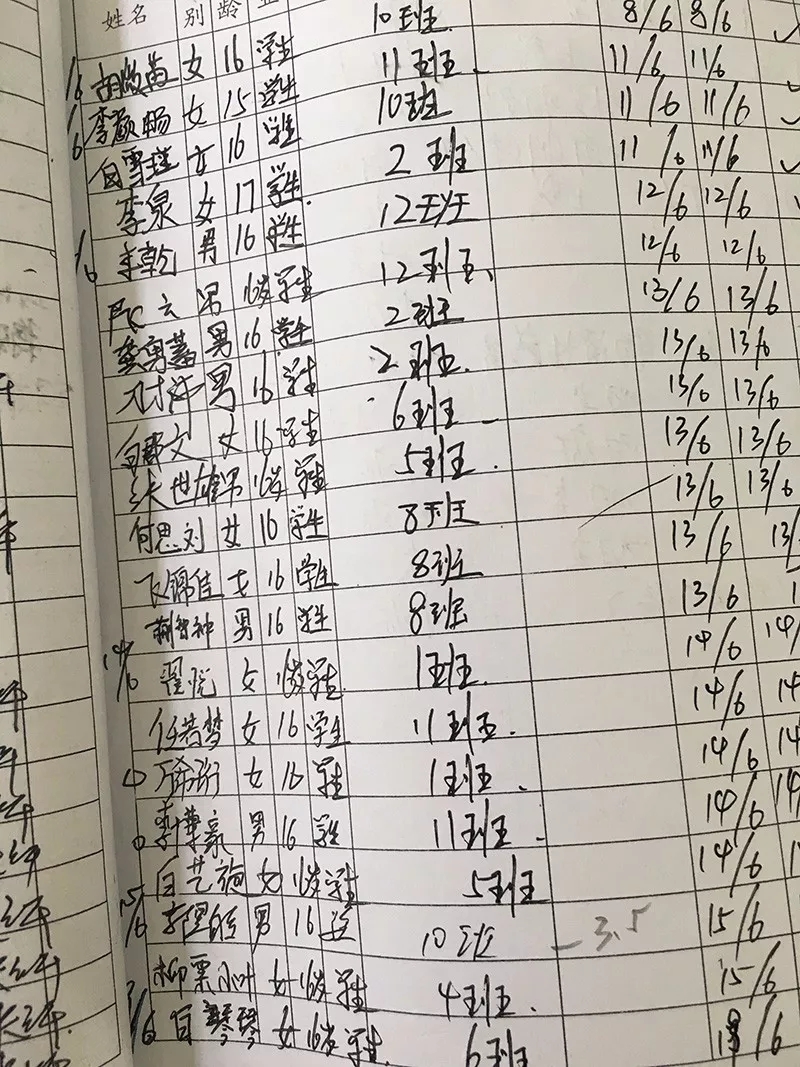 姓名 别 龄
10班 8/6 8/6
16 胡 苗 女 16 学生 11班 11/6 11/6
李颜畅 女 15 学生 10班 11/6 11/6
6 白雪 女 16 学生 2班 11/6 11/6
李泉 女 17 学生 12班 12/6 12/6
李乾 男 16 学生 12班 12/6 12/6
云 男 16岁 学生 2班 13/6 13/6
龚勇 男 16 学生 2班 13/6 13/6
男 16 学生 6班 13/6 13/6
白 文 女 16 学生 5班 13/6 13/6
张世雄 男 16岁 学生 8班 13/6 13/6
何思刘 女 16 学生 8班 13/6 13/
飞锦佳 女 16 学生 8班 13/6 1
男 16 学生 1班 14/6 14/
14/6 翟悦 女 16岁 学生 11班 14/6 14
任若梦 女 16 学生 1班 14/6 14
万 女 16 学生 11班 14/6 14
李 豪 男 16 学生 5班 14/6
白艺 女 16岁 学生 10班 3.5 15/6
15/6 李 男 16 4班 15/6
柳栗 叶 女 16岁 学生 6班 18/6
白琴琴 女 16岁 学生